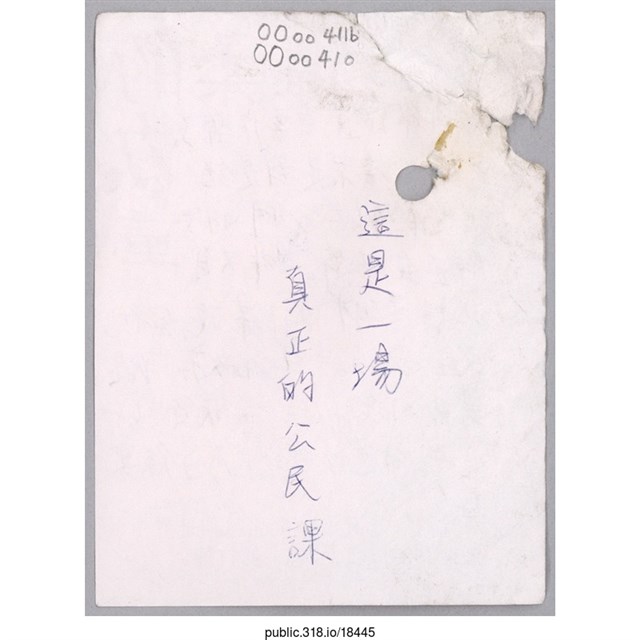 0000411b
0000410
這是一場
真正的公民課
public.318.io/18445